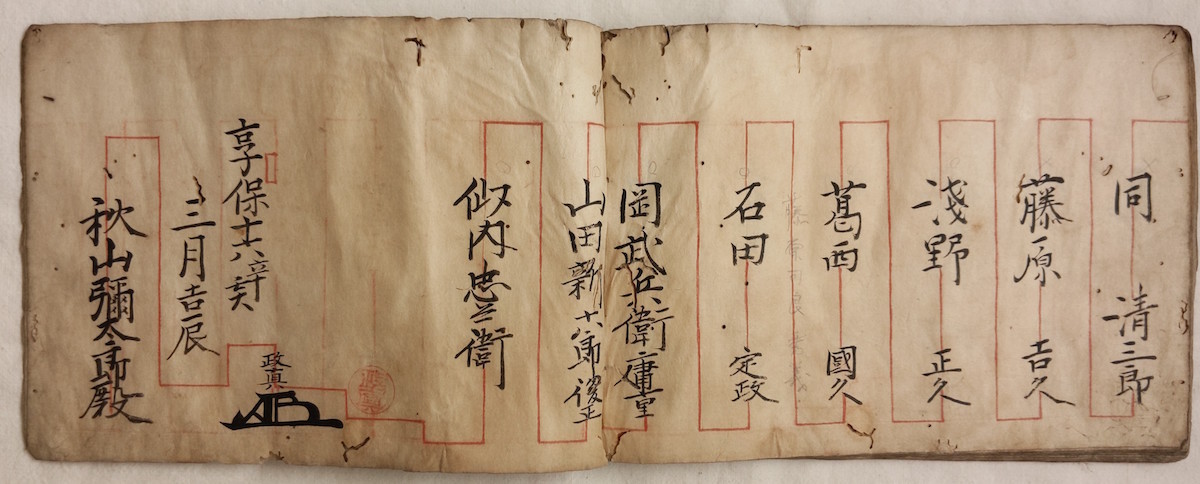 同 清三郎
藤原 吉久
淺野 正久
葛西 國久
石田 定政
岡武兵衛庸重
山田新十郎俊
内忠兵衛
政真
享保十六辛亥
三月吉辰
秋山彌太郎殿